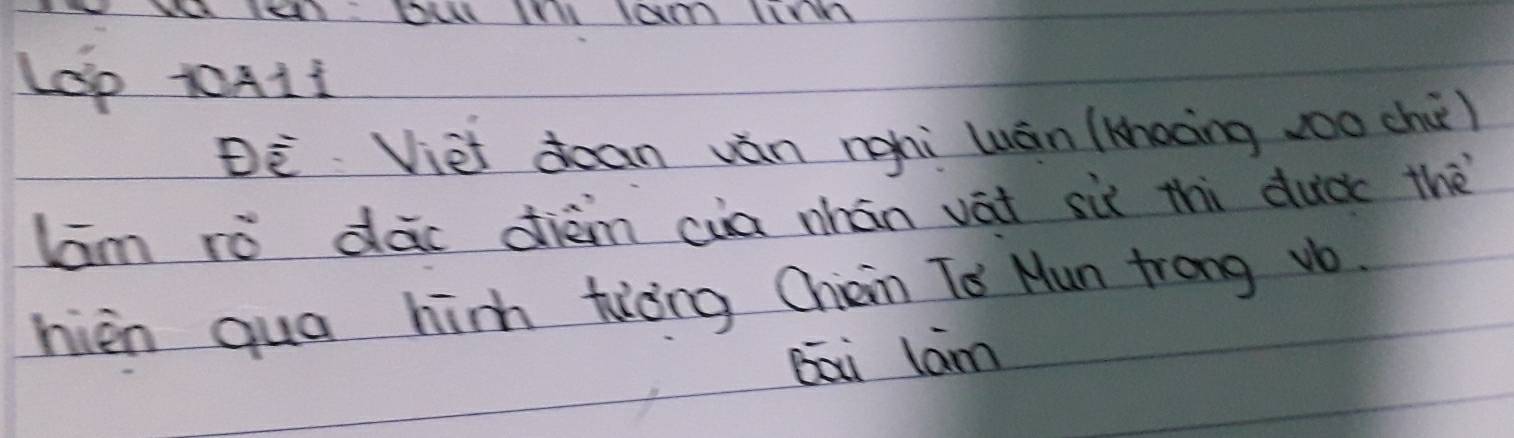 tên: Bùi Thị lam linh
Lớp 10A11
Đề: Viết đoạn văn nghị luận (khoảng 200 chữ)
làm rõ đặc điểm của nhân vật sử thi được thể
hiện qua hình tượng Chiêm Tơ Mun trong vb.
Bài làm